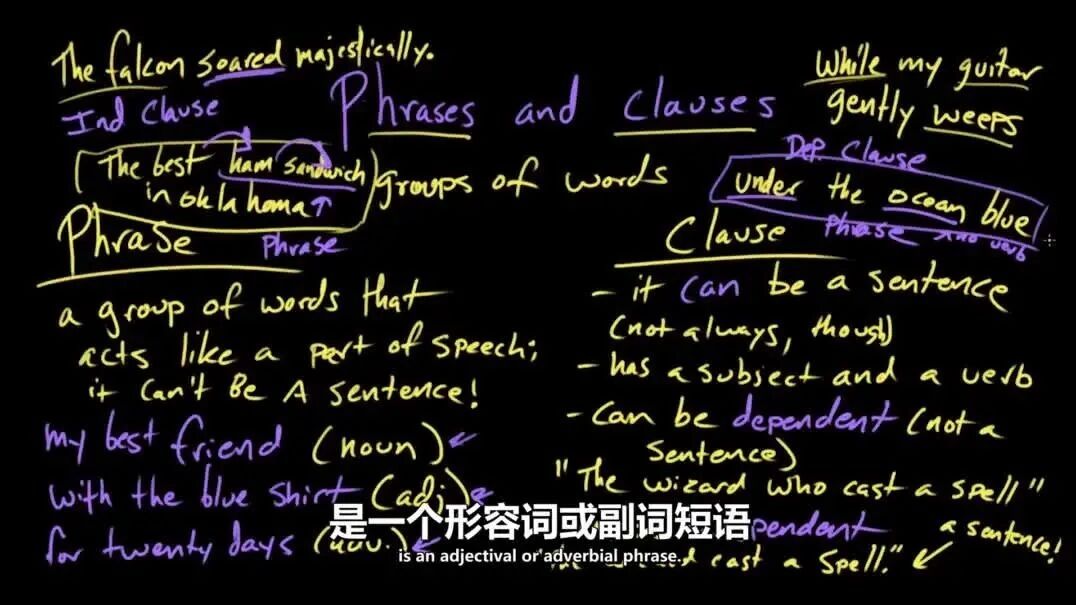 The falcon soared majestically.
Ind Clause
Phrases and Clauses
While my guitar
gently weeps
Dep. Clause
The best ham sandwich
in oklahoma
Phrase
groups of words
under the ocean blue
Phrase no verb
Phrase
a group of words that
acts like a part of speech;
it Can't Be A Sentence!
my best friend (noun)
with the blue shirt (adj)
for twenty days (adv.)
Clause
- it can be a sentence
(not always, though)
- has a subject and a verb
- Can be dependent (not a
Sentence)
"The wizard who cast a spell"
pendent a sentence!
cast a Spell."
是一个形容词或副词短语
is an adjectival or adverbial phrase.